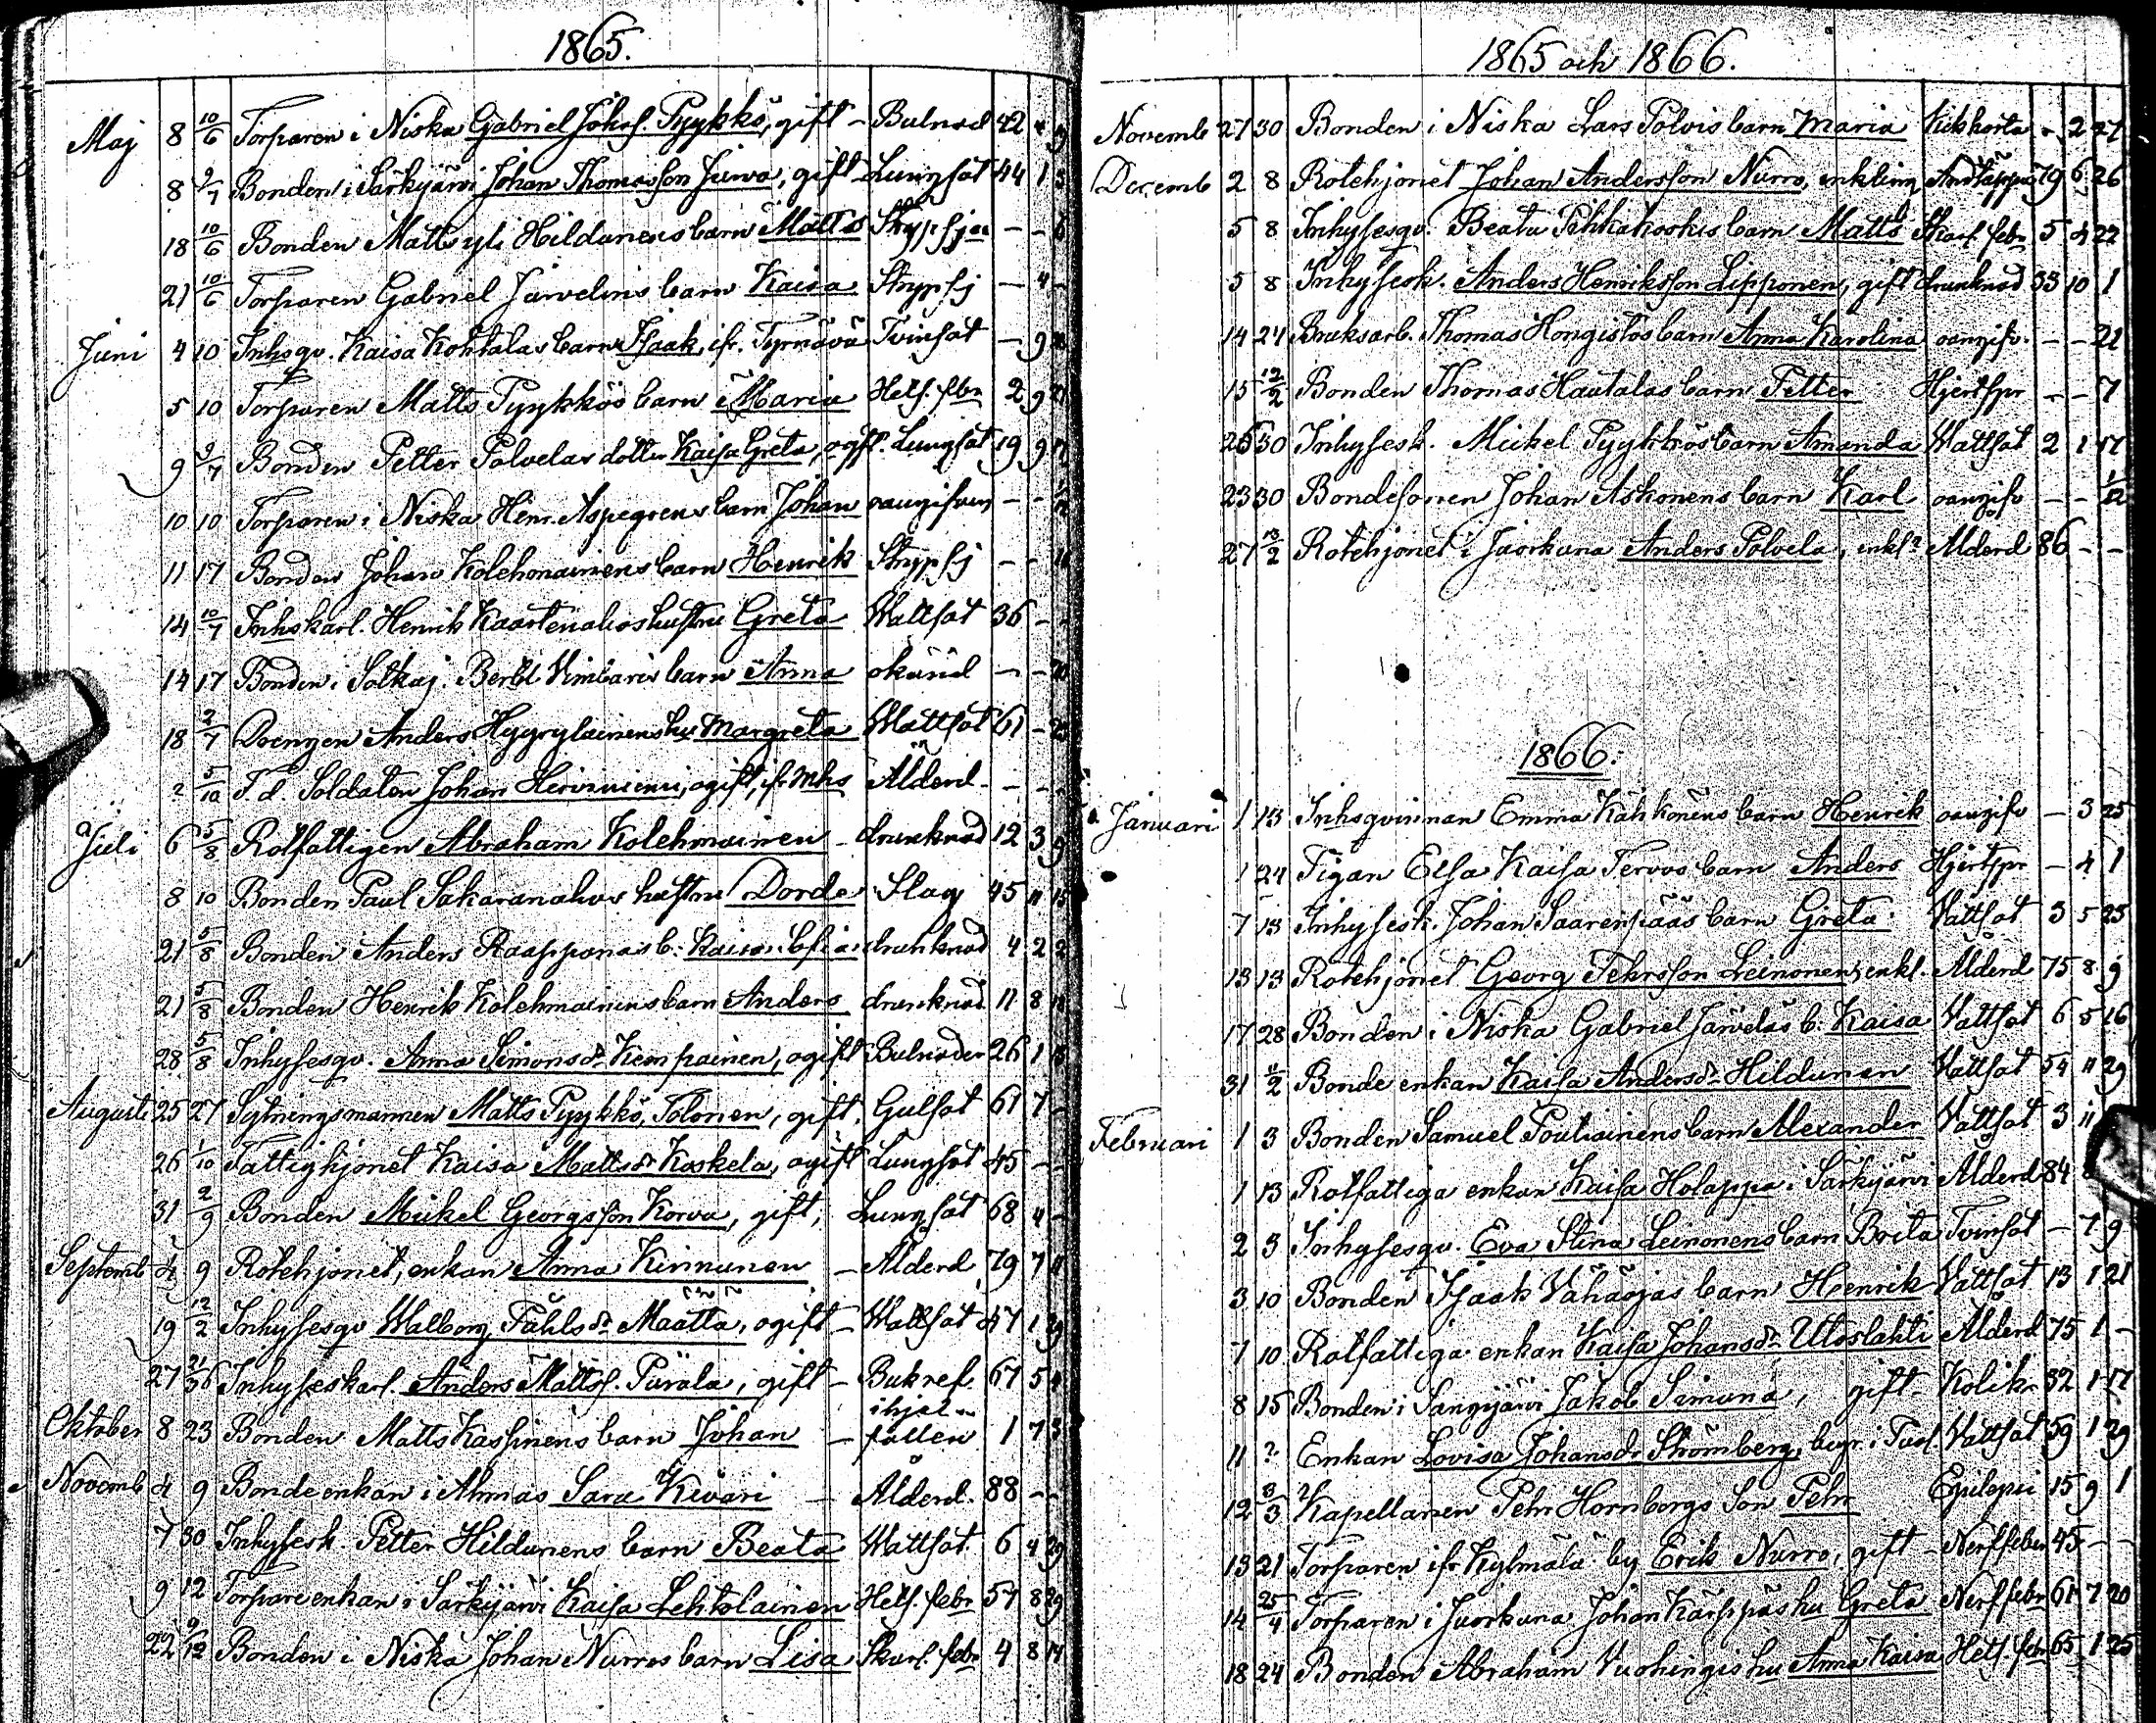 1865.
Maj 8 10/6 Torparen i Niska Gabriel Johs. Pyykkö, gift - Bulnad 42
8 9/7 Bonden i Särkijärvi Johan Thomasson Jurva, gift - Lungsot 44 1
18 10/6 Bonden Matts yli Hildunens barn Matts Strypsjua - -
21 10/6 Torparen Gabriel Järvelins barn Kaisa Strypsj - 4 -
Juni 4 10 Inhsqv. Kaisa Kohtalas barn Isaak, ifr. Tyrnävä Tvinsot - 9
5 10 Torparen Matts Pyykkös barn Maria Hets. febr 2 9 21
9 9/7 Bonden Petter Polvelas dotter Kaisa Greta, ogft. Lungsot 19 9 17
10 10 Torparen i Niska Henr. Aspegrens barn Johan oangifven - -
11 17 Bonden Johan Kolehmainens barn Henrik Strypsj - -
14 10/7 Inhskarl. Henrik Kaartenahos hustru Greta Wattsot 36 - -
14 17 Bonden i Sotkaj. Bertel Vimparis barn Anna okänd - -
18 2/7 Drengen Anders Hyyryläinens hu Margreta Wattsot 61 - 23
? 5/10 F.d. Soldaten Johan Hervaniemi, ogift, ifr Mhs Ålderd - - -
Juli 6 5/8 Rotfattigen Abraham Kolehmainen - drunknad 12 3 9
8 10 Bonden Paul Sakaranahos hustru Dorde Slag 45 11 15
21 5/8 Bonden Anders Raappanas b. Kaisa drunknad 4 2 2
21 5/8 Bonden Henrik Kolehmainens barn Anders drunknad 11 8 18
28 5/8 Inhysesqv. Anna Simonsdr Kemppainen, ogift Bulnader 26 1 15
Augusti 25 27 Sytningsmannen Matts Pyykkö, Tolonen, gift, Gulsot 61 7 -
26 1/10 Fattighjonet Kaisa Mattsdr Koskela, ogift Lungsot 45 - -
31 2/9 Bonden Mickel Georgsson Korva, gift, Lungsot 68 4 -
Septemb 4 9 Rotehjonet, enkan Anna Kinnunen - Ålderd 79 7 11
19 12/2 Inhysesqv Walborg Påhlsdr Määttä, ogift - Wattsot 47 1 29
27 Inhyseskarl. Anders Mattss. Pürälä, gift - Bukref 67 5
Oktober 8 23 Bonden Matts Kaspinens barn Johan - ihjelfallen 1 7 3
Novemb 4 9 Bondeenkan i Ahmas Sara Kiväri - Ålderd. 88 - -
7 30 Inhysesk. Petter Hildunens barn Beata Wattsot. 6 4 29
9 12 Torpareenkan i Särkijärvi Kaisa Lehtolainen Hets. febr 57 8 29
22 9/12 Bonden i Niska Johan Nurros barn Lisa Skarl. febr 4 8 14
1865 och 1866.
Novemb 27 30 Bonden i Niska Lars Polvis barn Maria Kikhosta - 2 27
Decemb 2 8 Rotehjonet Johan Andersson Nurro, enkling Andtäppa 79 6 26
5 8 Inhysesqv. Beata Pehkakoskis barn Matts Skarl. febr 5 4 22
5 8 Inhysesk. Anders Henriksson Lipponen, gift drunknad 33 10 1
14 24 Bruksarb. Thomas Hongistos barn Anna Karolina oangifv. - - 21
15 12/2 Bonden Thomas Hautalas barn Petter Hjertspr - - 7
26 30 Inhysesk. Mickel Pyykkös barn Amanda Wattsot 2 1 17
23 30 Bondesonen Johan Askonens barn Karl oangifv - - 1/12
27 13/2 Rotehjonet i Juorkuna Anders Polvela, enkl. Ålderd 86 - -
1866.
Januari 1 13 Inhsqvinnan Emma Kähkönens barn Henrik oangifv - 3 25
1 24 Pigan Elsa Kaisa Tervos barn Anders Hjertspr - 4 1
7 13 Inhysesk. Johan Saarenpääs barn Greta Vattsot 3 5 25
13 13 Rotehjonet Georg Pehrsson Leinonen, enkl. Ålderd 75 8 9
17 28 Bonden i Niska Gabriel Järveläs b. Kaisa Vattsot 6 5 16
31 11/2 Bondeenkan Kaisa Andersdr Hildunen Vattsot 54 11 29
Februari 1 3 Bonden Samuel Poutiainens barn Alexander Vattsot 3 11
1 13 Rotfattiga enkan Kaisa Holappa i Särkijärvi Ålderd 84
2 3 Inhysesqv. Eva Stina Leinonens barn Brita Tvinsot - 7 9
3 10 Bonden Isaak Vähäojas barn Henrik Vattsot 13 1 21
7 10 Rotfattiga enkan Kaisa Johansdr Utoslahti Ålderd 75 1 -
8 15 Bonden i Sangijärvi Jakob Simunä, gift - Kolik 32 1 17
11 ? Enkan Lovisa Johansdr Strömberg, begr. i Vattsot 59 1 29
12 3/3 Kapellanen Pehr Hornborgs Son Pehr Epilepsi 15 9 1
13 21 Torparen ifr Kylmälä by Erik Nurro, gift - Nerffeber 45 - -
14 25/4 Torparen i Juorkuna Johan Kärppäs hu Greta Nerffebr 61 7 20
18 24 Bonden Abraham Vuohingis hu Anna Kaisa Hets. febr 65 1 25